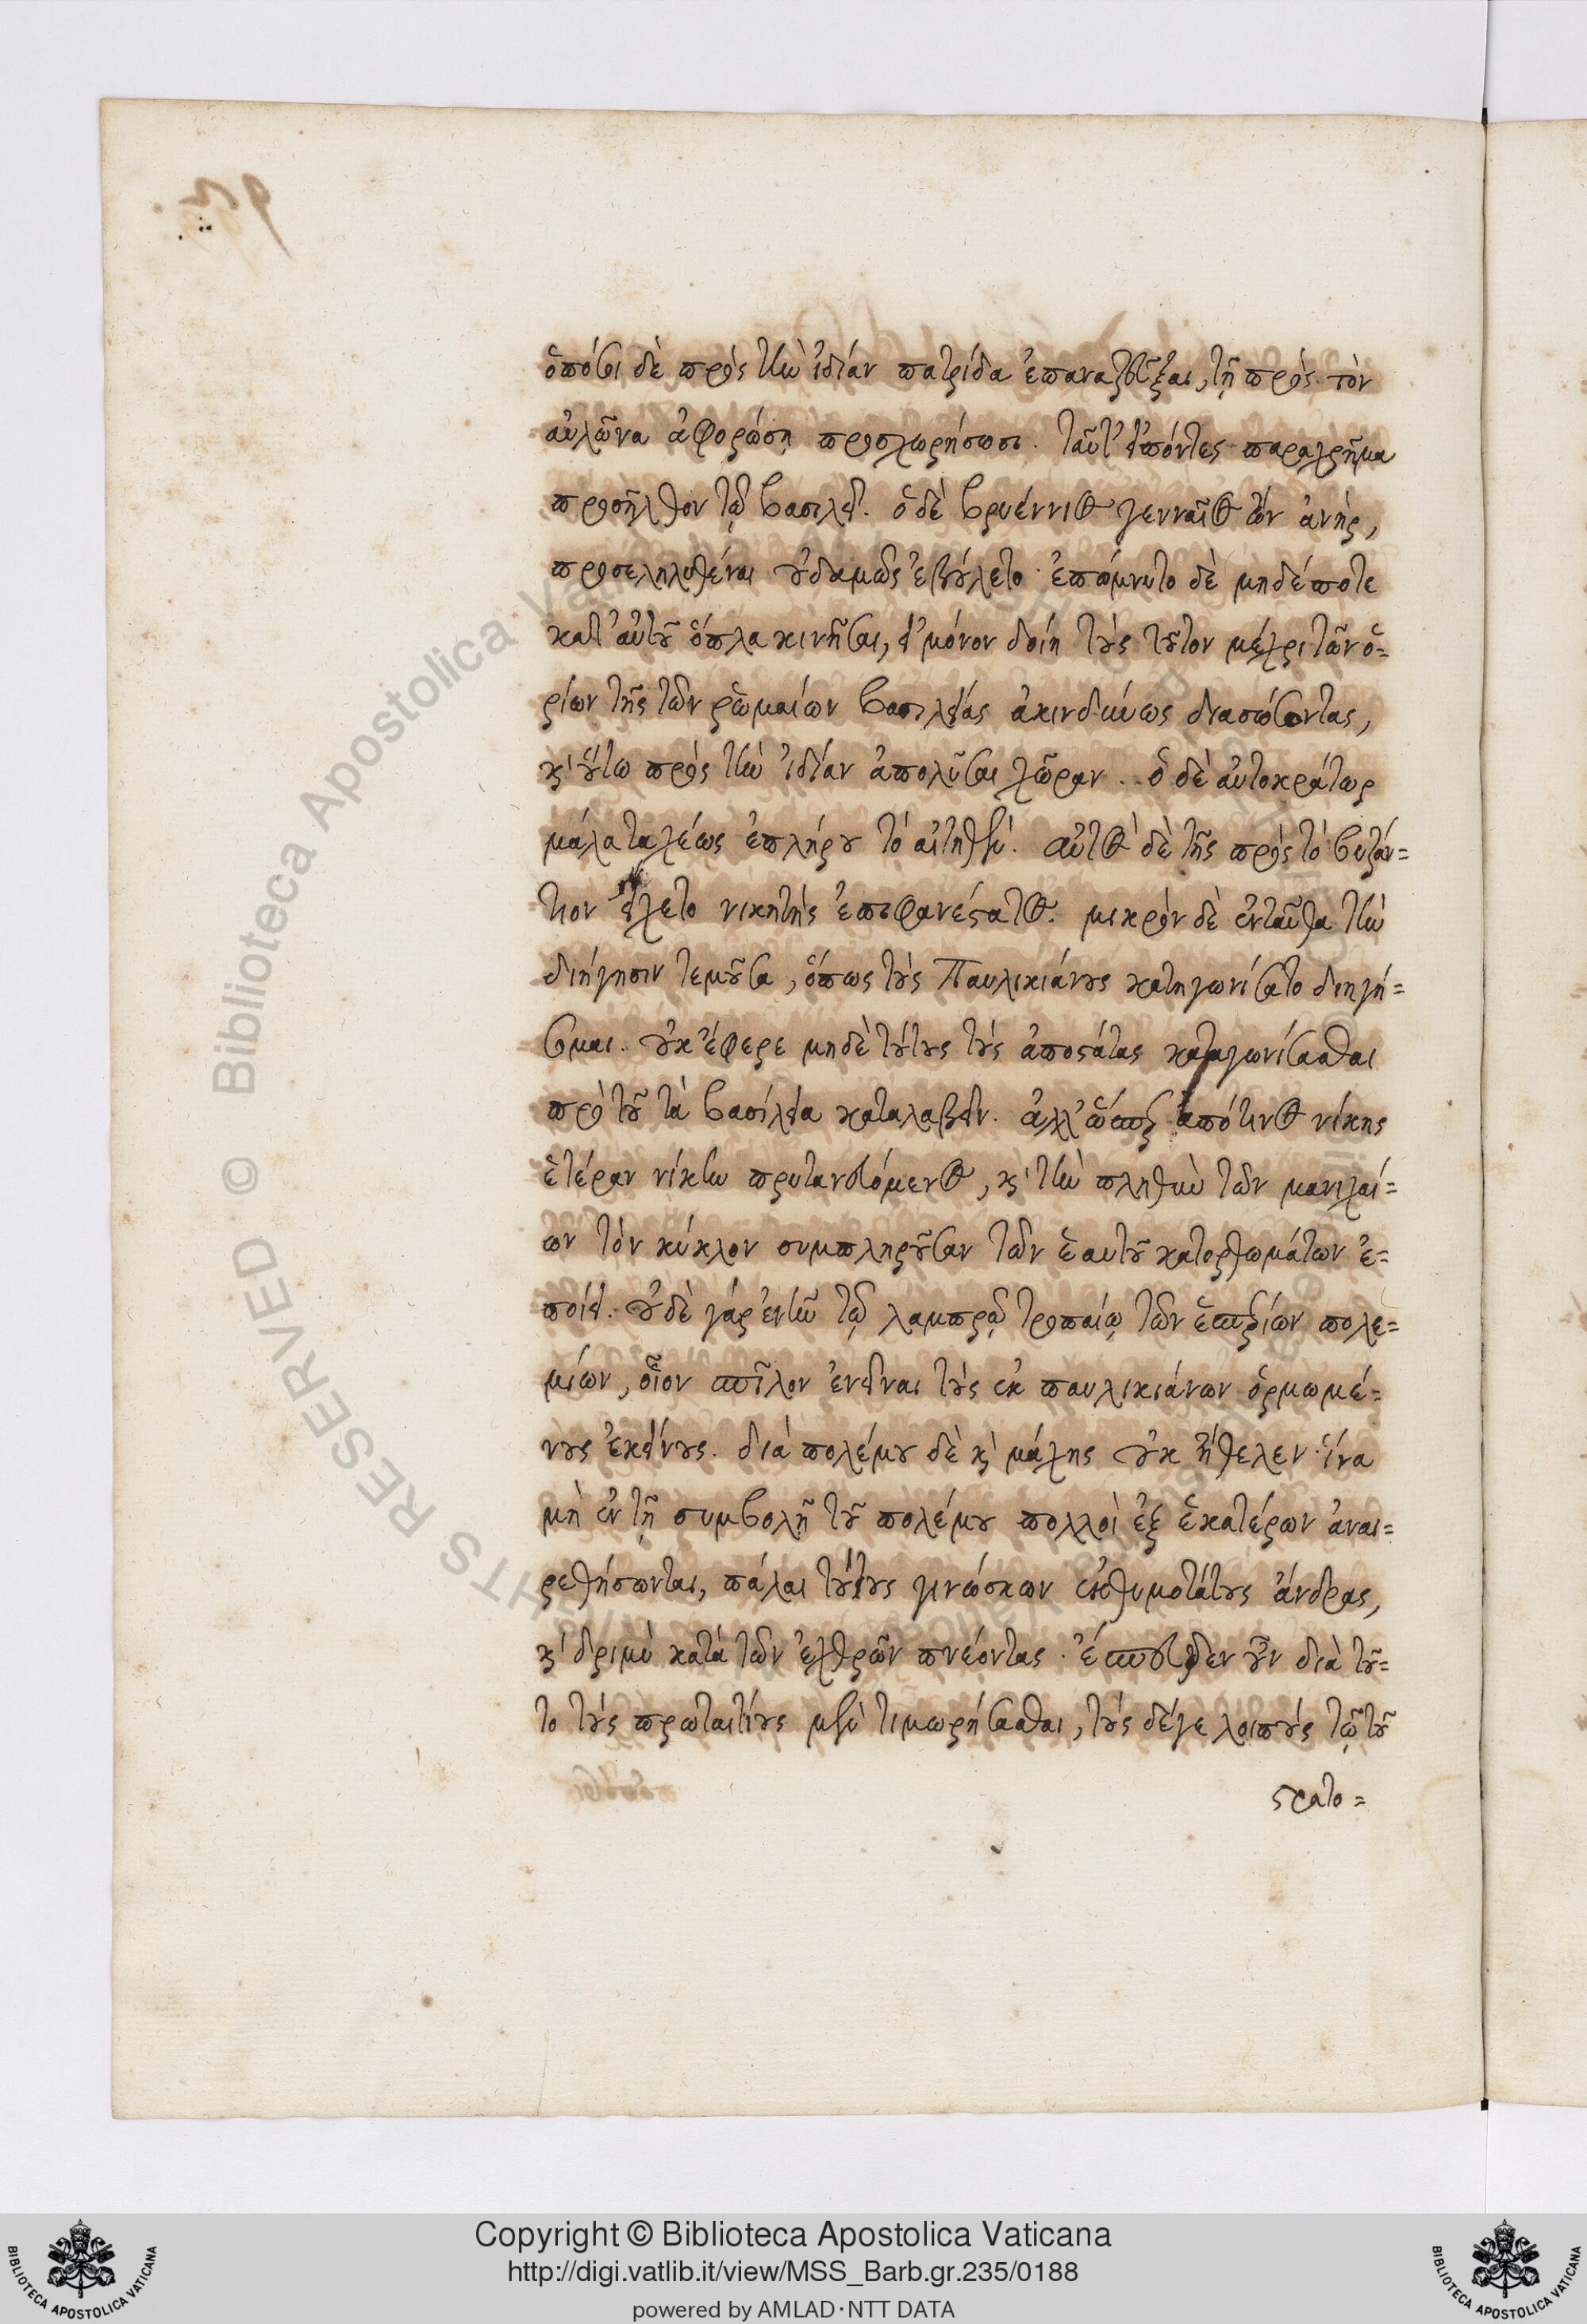 ὁπόσοι δὲ πρὸς τὴν ἰδίαν πατρίδα ἐπαναζεῦξαι, τῇ πρὸς τὸν
αὐλῶνα ἀφορώσῃ προσχωρήσωσι. ταῦτ' εἰπόντες παραχρῆμα
προσῆλθον τῷ βασιλεῖ. ὁ δὲ βρυέννιος γενναῖος ὢν ἀνὴρ,
προσεληλυθέναι οὐδαμῶς ἐβούλετο· ἐπώμνυτο δὲ μηδέποτε
κατ' αὐτοῦ ὅπλα κινῆσαι, εἰ μόνον δοίη τοὺς τοῦτον μέχρι τῶν ὁ=
ρίων τῆς τῶν ῥωμαίων βασιλείας ἀκινδύνως διασώσοντας,
κ' οὕτω πρὸς τὴν ἰδίαν ἀπολῦσαι χῶραν. ὁ δὲ αὐτοκράτωρ
μάλα ταχέως ἐπλήρου τὸ αἰτηθέν. αὐτὸς δὲ τῆς πρὸς τὸ βυζάν=
τιον εἴχετο νικητὴς ἐπιφανέστατος. μικρὸν δὲ ἐνταῦθα τὴν
διήγησιν τεμοῦσα, ὅπως τοὺς Παυλικιάνους κατηγωνίσατο διηγή=
σομαι. οὐκ ἔφερε μηδὲ τούτους τοὺς ἀποστάτας καταγωνίσασθαι
πρὸ τοῦ τὰ βασίλεια καταλαβεῖν. ἀλλ' ὥσπερ ἀπό τινος νίκης
ἑτέραν νίκην πρυτανευόμενος, κ' τὴν πληθὺν τῶν μανιχαί=
ων τὸν κύκλον συμπληροῦσαν τῶν ἑαυτοῦ κατορθωμάτων ἐ=
ποίει. οὐδὲ γὰρ ἐνῆν τῷ λαμπρῷ τροπαίῳ τῶν ἑσπερίων πολε=
μίων, οἷον σπῖλον ἐνεῖναι τοὺς ἐκ παυλικιάνων ὁρμωμέ=
νους ἐκείνους. διὰ πολέμου δὲ κ' μάχης οὐκ ἤθελεν· ἵνα
μὴ ἐν τῇ συμβολῇ τοῦ πολέμου πολλοὶ ἐξ ἑκατέρων ἀναι=
ρεθήσωνται, πάλαι τούτους γινώσκων εὐθυμοτάτους ἄνδρας,
κ' δριμὺ κατὰ τῶν ἐχθρῶν πνέοντας. ἔσπευδεν οὖν διὰ τοῦ=
το τοὺς πρωταιτίους μὲν τιμωρήσασθαι, τοὺς δέ γε λοιποὺς τῷ τοῦ
στρατο=
Copyright © Biblioteca Apostolica Vaticana
http://digi.vatlib.it/view/MSS_Barb.gr.235/0188
powered by AMLAD·NTT DATA